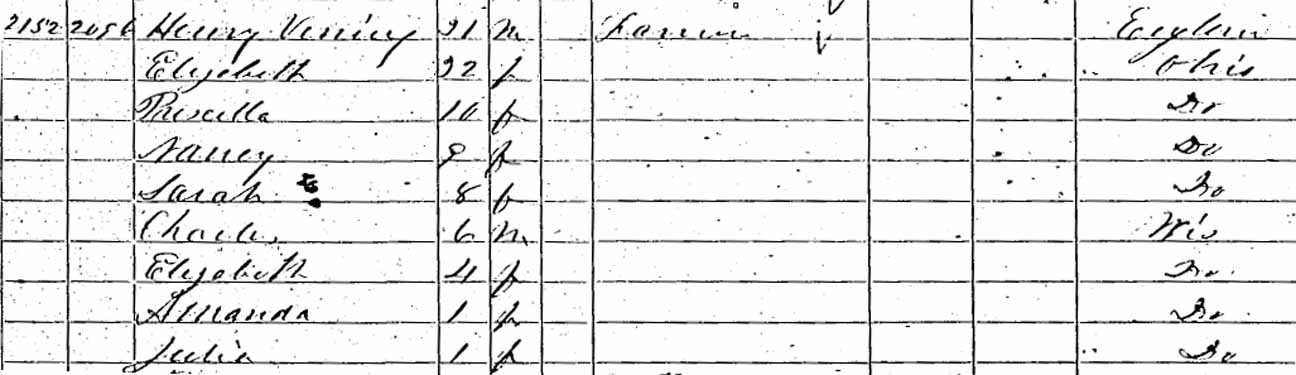 2152 2096 Henry Vining 31 m Farmer England
Elizabeth 32 f Ohio
Priscilla 10 f Do
Nancy 9 f Do
Sarah 8 f Do
Charles 6 m Wis
Elizabeth 4 f Do
Amanda 1 f Do
Julia 1 f Do